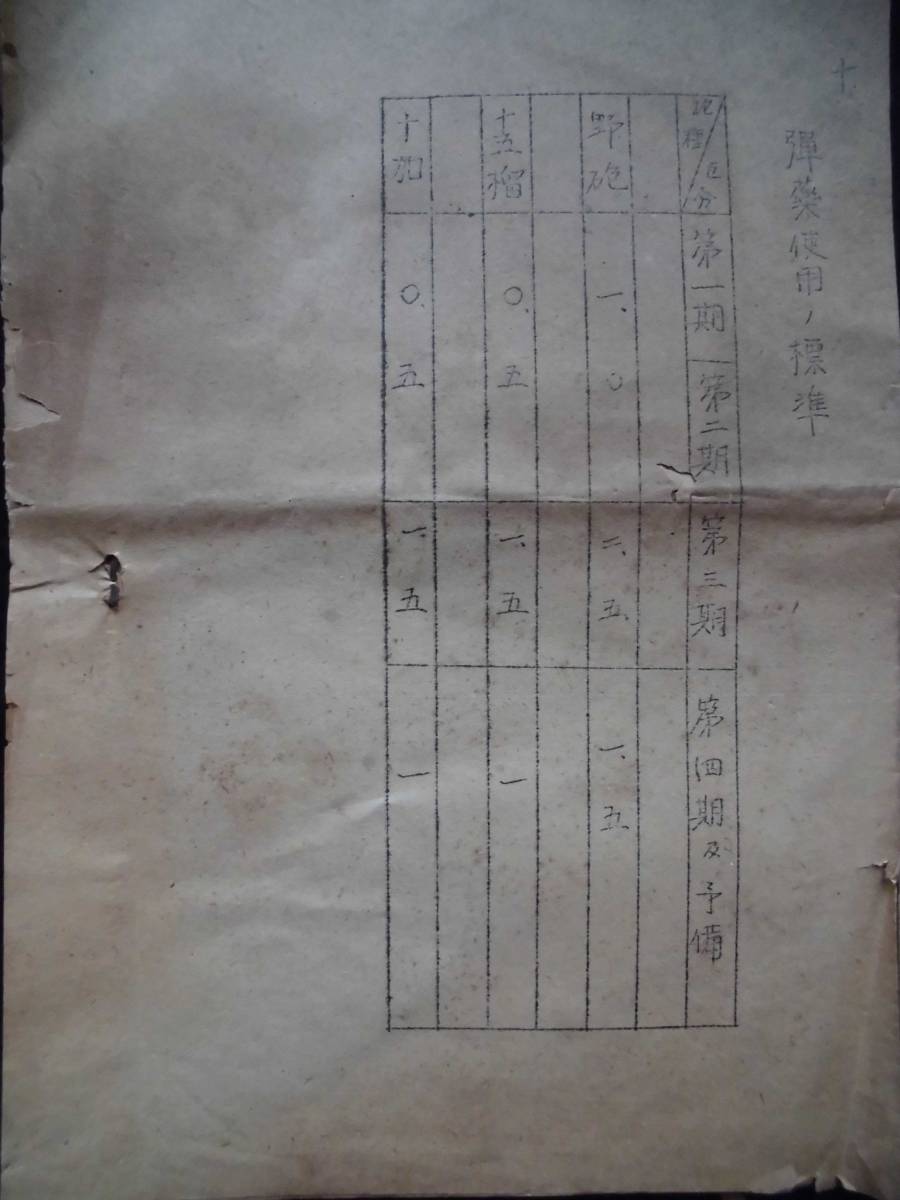 十、
彈藥使用ノ標準
砲種/区分
第一期
第二期
第三期
第四期及予備
野砲
一、〇
二、五
一、五
十五榴
〇、五
一、五
一
十加
〇、五
一、五
一